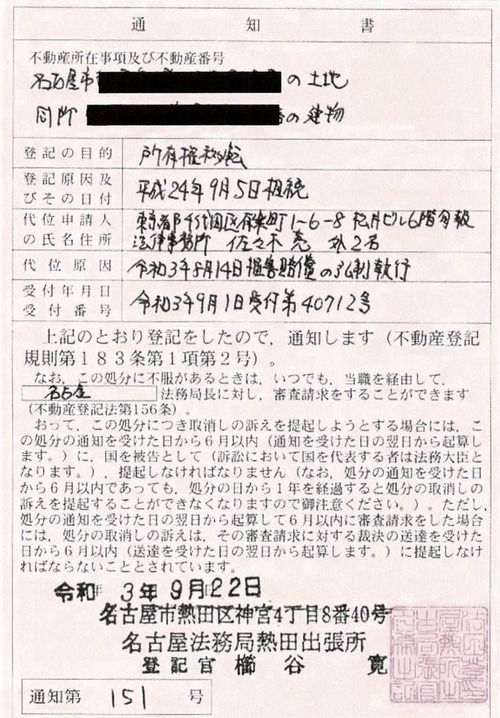 通知書
不動産所在事項及び不動産番号
名古屋市 の土地
同所 の建物
登記の目的 所有権移転
登記原因及びその日付 平成24年9月5日相続
代位申請人の氏名住所 東京都千代田区 町1-6-8 松月ビル6階旬報
法律事務所 佐々木亮 外2名
代位原因 令和3年5月14日損害賠償の強制執行
受付年月日
受付番号 令和3年9月1日受付第40712号
上記のとおり登記をしたので，通知します（不動産登記
規則第183条第1項第2号）。
なお，この処分に不服があるときは，いつでも，当職を経由して，
名古屋 法務局長に対し，審査請求をすることができます
（不動産登記法第156条）。
おって，この処分につき取消しの訴えを提起しようとする場合には，こ
の処分の通知を受けた日から6月以内（通知を受けた日の翌日から起算しま
す。）に，国を被告として（訴訟において国を代表する者は法務大臣と
なります。），提起しなければなりません（なお，処分の通知を受けた日
から6月以内であっても，処分の日から1年を経過すると処分の取消しの
訴えを提起することができなくなりますので御注意ください。）。ただし，
処分の通知を受けた日の翌日から起算して6月以内に審査請求をした場合
には，処分の取消しの訴えは，その審査請求に対する裁決の送達を受けた
日から6月以内（送達を受けた日の翌日から起算します。）に提起しなけ
ればならないこととされています。
令和 3年9月22日
名古屋市熱田区神宮4丁目8番40号
名古屋法務局熱田出張所
登記官 櫛谷 寛
通知第 151 号